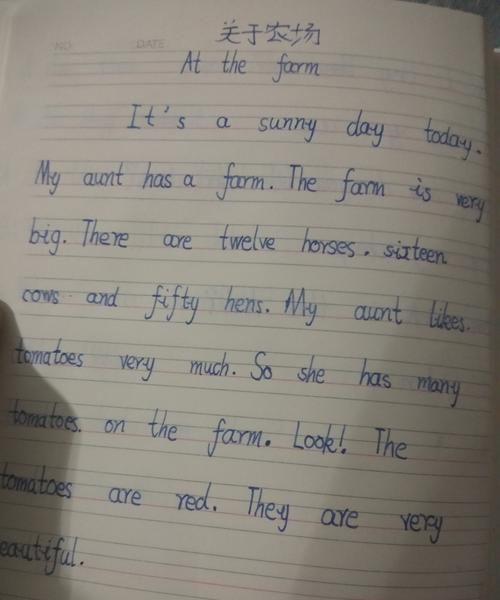 关于农场
NO. DATE
At the farm
It's a sunny day today.
My aunt has a farm. The farm is very
big. There are twelve horses. sixteen
cows and fifty hens. My aunt likes.
tomatoes very much. So she has many
tomatoes. on the farm. Look! The
tomatoes are red. They are very
eautiful.